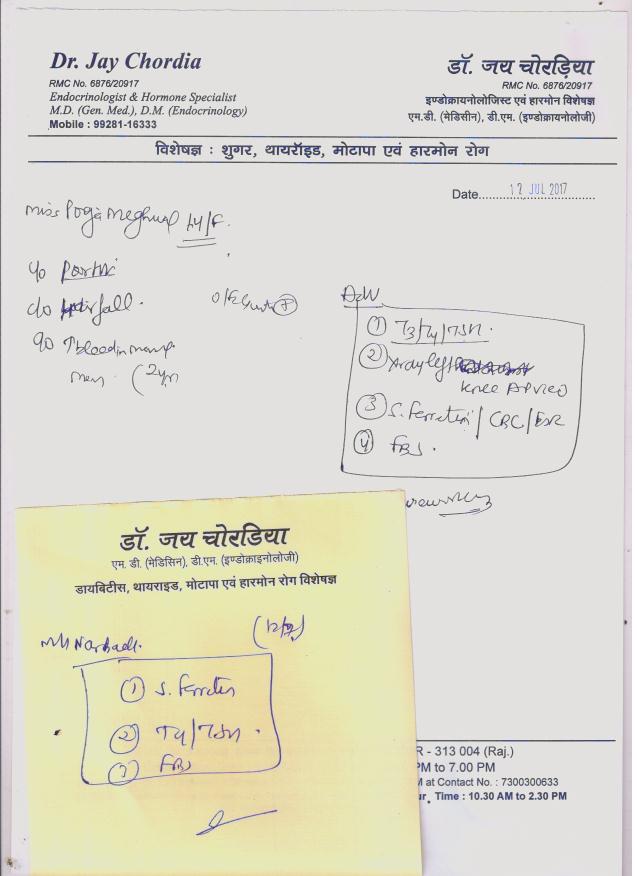 Dr. Jay Chordia
RMC No. 6876/20917
Endocrinologist & Hormone Specialist
M.D. (Gen. Med.), D.M. (Endocrinology)
Mobile : 99281-16333
डॉ. जय चोरड़िया
RMC No. 6876/20917
इण्डोक्रायनोलोजिस्ट एवं हारमोन विशेषज्ञ
एम.डी. (मेडिसिन), डी.एम. (इण्डोक्रायनोलॉजी)
विशेषज्ञ : शुगर, थायरॉइड, मोटापा एवं हारमोन रोग
Date 12 JUL 2017
Miss Meghwal
c/o
c/o fall.
c/o ↑bleed
(2yrs
Adv
① T3/T4/TSH.
② Xray left
knee AP
③ S. Ferretin / CBC / ESR
④ FBS.
डॉ. जय चोरडिया
एम. डी. (मेडिसिन), डी.एम. (इण्डोक्राइनोलॉजी)
डायबिटीस, थायराइड, मोटापा एवं हारमोन रोग विशेषज्ञ
(12/7)
① S. Ferretin
② T4/TSH.
③ FBS
R - 313 004 (Raj.)
PM to 7.00 PM
M at Contact No. : 7300300633
ur, Time : 10.30 AM to 2.30 PM